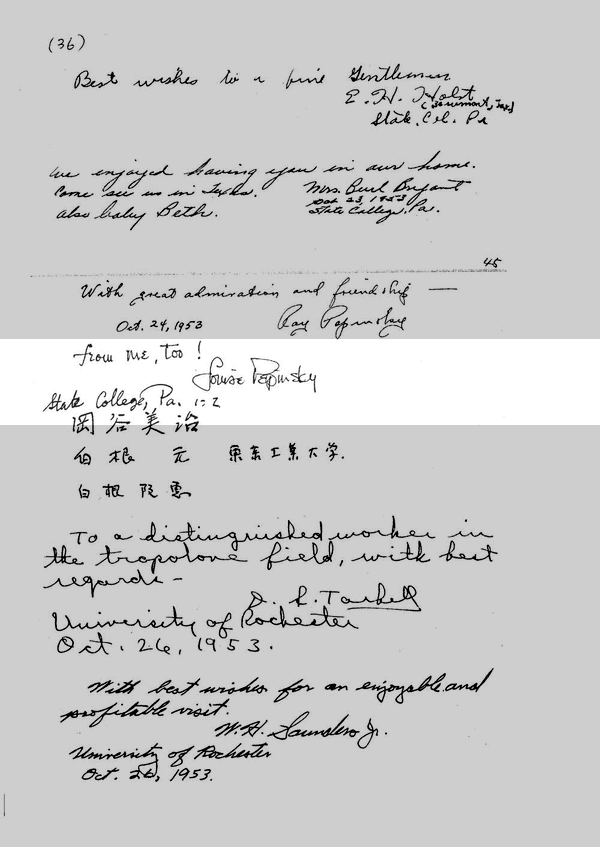 (36)
Best wishes to a fine Gentleman
E. H. Holst
(Beaumont, Tex)
State. Col. Pa
We enjoyed having you in our home.
Come see us in Texas. Mrs. Burl Bryant
also baby Beth. Oct 23, 1953
State College, Pa.
45
With great admiration and friendship —
Oct. 24, 1953 Ray Pepinsky
from me, too !
Louise Pepinsky
State College, Pa.
岡谷美治
白根 元 東京工業大学.
白根
To a distinguished worker in
the tropolone field, with best
regards -
D. S. Tarbell
University of Rochester
Oct. 26, 1953.
With best wishes for an enjoyable and
profitable visit.
W. H. Saunders Jr.
University of Rochester
Oct. 26, 1953.